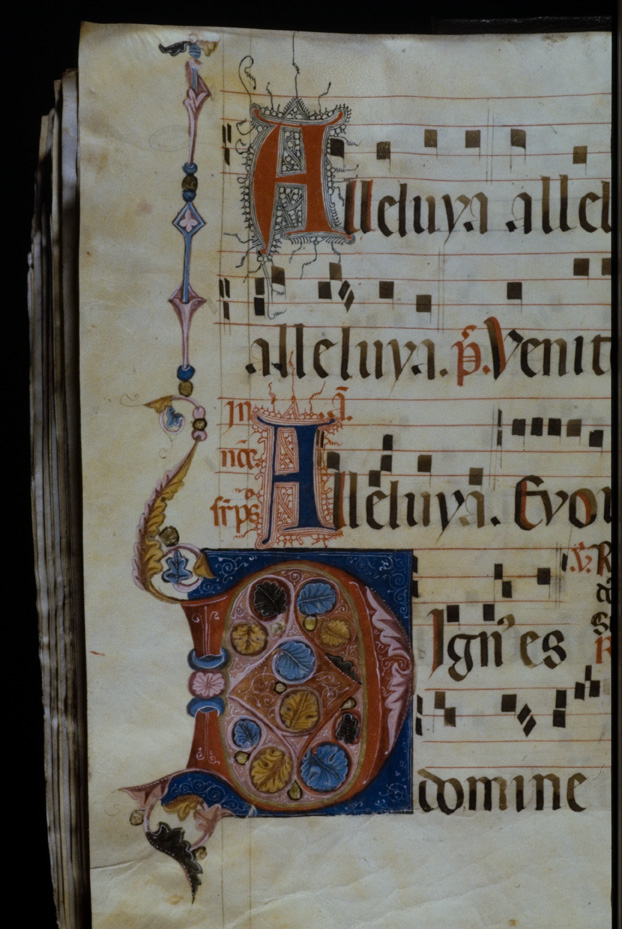 Alleluya allel
alleluya. p̃. Venit
Jn ã.
Alleluya. Evo
Dign' es
domine